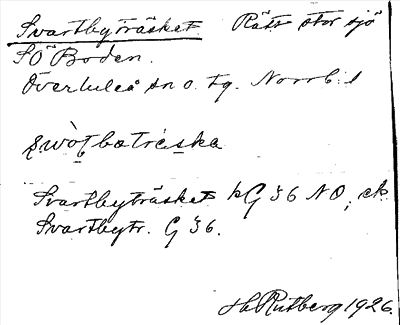 Svartbyträsket Rätt stor sjö
SO Boden.
Överluleå sn o. tg. Norrb. l
Svartbyträsket kG 36 NO, ek
Svartbytr. G 36.
H. Rutberg 1926.